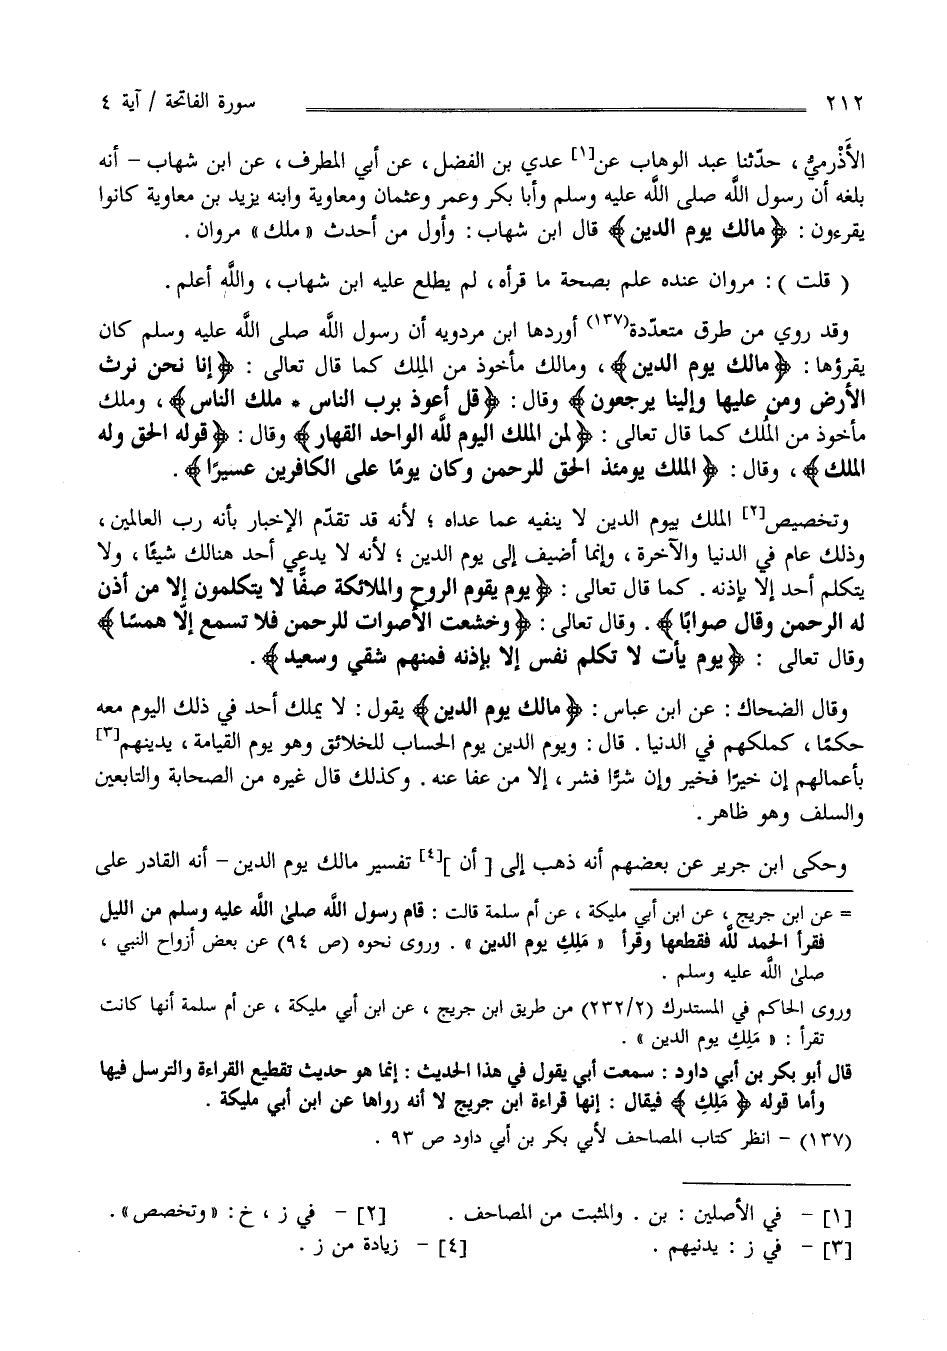 ٢١٢ سورة الفاتحة / آية ٤
الأَذْرميُّ ، حدّثنا عبد الوهاب عن[١] عدي بن الفضل ، عن أبي المطرف ، عن ابن شهاب – أنه
بلغه أن رسول اللَّه صلى اللَّه عليه وسلم وأبا بكر وعمر وعثمان ومعاوية وابنه يزيد بن معاوية كانوا
يقرءون : ﴿مالك يوم الدين﴾ قال ابن شهاب : وأول من أحدث « ملك » مروان .
( قلت ) : مروان عنده علم بصحة ما قرأه ، لم يطلع عليه ابن شهاب ، واللَّه أعلم .
وقد روي من طرق متعدّدة(١٣٧) أوردها ابن مردويه أن رسول اللَّه صلى اللَّه عليه وسلم كان
يقرؤها : ﴿مالك يوم الدين﴾ ، ومالك مأخوذ من المِلك كما قال تعالى : ﴿إنا نحن نرث
الأرض ومن عليها وإلينا يرجعون﴾ وقال : ﴿قل أعوذ برب الناس * ملك الناس﴾ ، وملك
مأخوذ من المُلك كما قال تعالى : ﴿لمن الملك اليوم للَّه الواحد القهار﴾ وقال : ﴿قوله الحق وله
الملك﴾ ، وقال : ﴿الملك يومئذ الحق للرحمن وكان يومًا على الكافرين عسيرًا﴾ .
وتخصيص[٢] الملك بيوم الدين لا ينفيه عما عداه ؛ لأنه قد تقدّم الإخبار بأنه رب العالمين ،
وذلك عام في الدنيا والآخرة ، وإنما أضيف إلى يوم الدين ؛ لأنه لا يدعي أحد هنالك شيئًا ، ولا
يتكلم أحد إلا بإذنه . كما قال تعالى : ﴿يوم يقوم الروح والملائكة صفًّا لا يتكلمون إلا من أذن
له الرحمن وقال صوابًا﴾ . وقال تعالى : ﴿وخشعت الأصوات للرحمن فلا تسمع إلّا همسًا﴾
وقال تعالى : ﴿يوم يأت لا تكلم نفس إلا بإذنه فمنهم شقي وسعيد﴾ .
وقال الضحاك : عن ابن عباس : ﴿مالك يوم الدين﴾ يقول : لا يملك أحد في ذلك اليوم معه
حكمًا ، كملكهم في الدنيا . قال : ويوم الدين يوم الحساب للخلائق وهو يوم القيامة ، يدينهم[٣]
بأعمالهم إن خيرًا فخير وإن شرًّا فشر ، إلا من عفا عنه . وكذلك قال غيره من الصحابة والتابعين
والسلف وهو ظاهر .
وحكى ابن جرير عن بعضهم أنه ذهب إلى [ أن ][٤] تفسير مالك يوم الدين – أنه القادر على
= عن ابن جريج ، عن ابن أبي مليكة ، عن أم سلمة قالت : قام رسول اللَّه صلىٰ اللَّه عليه وسلم من الليل
فقرأ الحمد للَّه فقطعها وقرأ « مَلِكِ يوم الدين » . وروى نحوه (ص ٩٤) عن بعض أزواج النبي ،
صلىٰ اللَّه عليه وسلم .
وروى الحاكم في المستدرك (٢٣٢/٢) من طريق ابن جريج ، عن ابن أبي مليكة ، عن أم سلمة أنها كانت
تقرأ : « مَلِكِ يوم الدين » .
قال أبو بكر بن أبي داود : سمعت أبي يقول في هذا الحديث : إنما هو حديث تقطيع القراءة والترسل فيها
وأما قوله ﴿ مَلِكِ ﴾ فيقال : إنها قراءة ابن جريج لا أنه رواها عن ابن أبي مليكة .
(١٣٧) – انظر كتاب المصاحف لأبي بكر بن أبي داود ص ٩٣ .
[١] – في الأصلين : بن . والمثبت من المصاحف . [٢] – في ز ، خ : « وتخصص » .
[٣] – في ز : يدنيهم . [٤] – زيادة من ز .